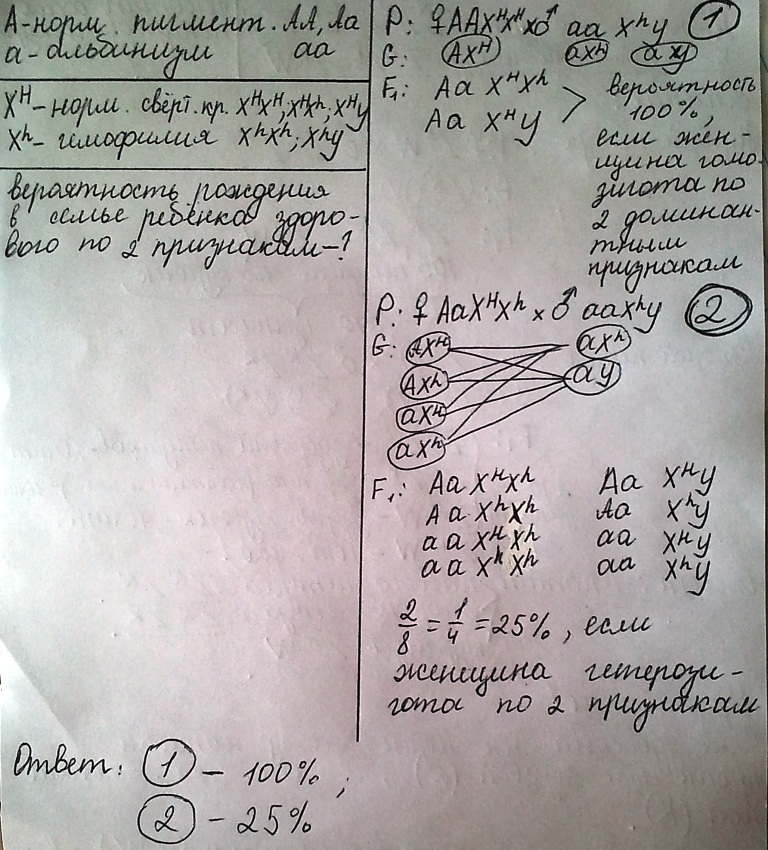 А-норм. пигмент. АА, Аа
а-альбинизм аа
Xᴴ-норм. свёрт. кр. XᴴXᴴ; XᴴXʰ; Xᴴy
Xʰ- гемофилия XʰXʰ; Xʰy
вероятность рождения
в семье ребёнка здоро-
вого по 2 признакам-?
P: ♀AAXᴴXᴴ x ♂ aa Xʰy 1
G: AXᴴ aXʰ ay
F₁: Aa XᴴXʰ
Aa Xᴴy
вероятность
100%,
если жен-
щина гомо-
зигота по
2 доминан-
тным
признакам
P: ♀ AaXᴴXʰ x ♂ aaXʰy 2
G: AXᴴ aXʰ
AXʰ ay
aXᴴ
aXʰ
F₁: Aa XᴴXʰ Aa Xᴴy
Aa XʰXʰ Aa Xʰy
aa XᴴXʰ aa Xᴴy
aa XʰXʰ aa Xʰy
2/8 = 1/4 = 25%, если
женщина гетерози-
гота по 2 признакам
Ответ: 1 - 100%;
2 - 25%